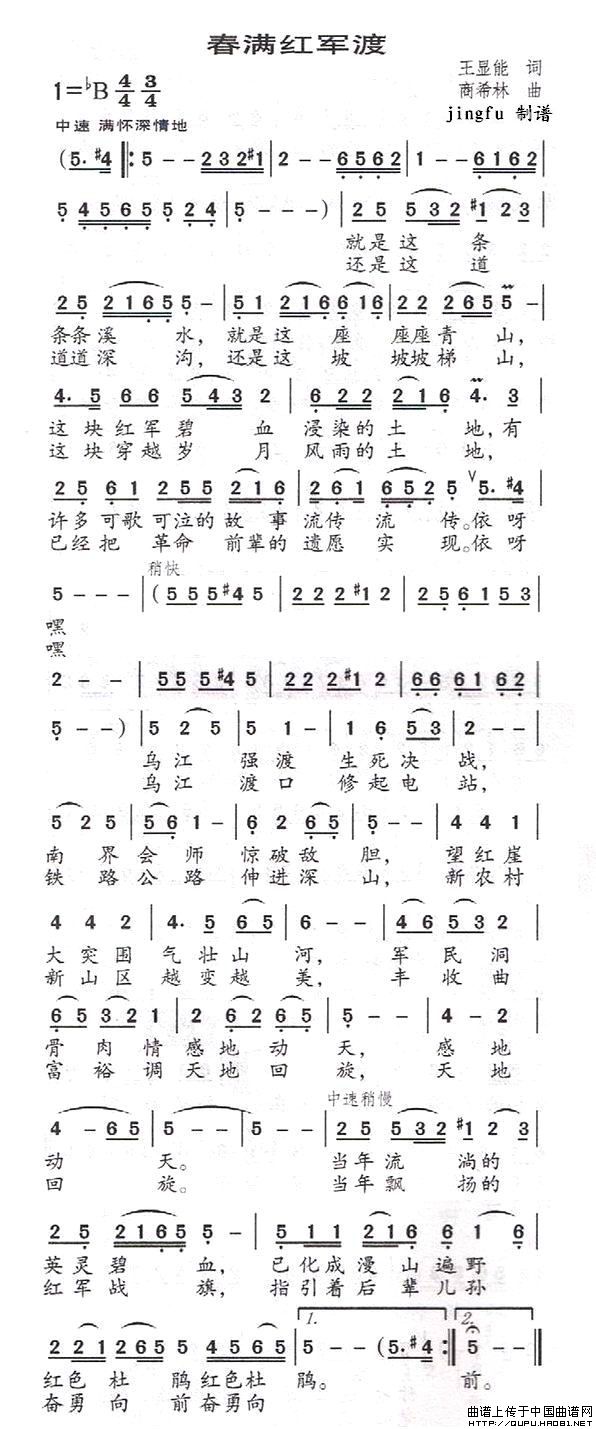 春满红军渡
1=♭B 4/4 3/4
王显能 词
商希林 曲
jingfu 制谱
中速 满怀深情地
(5. #4 ‖: 5 - - 2 3 2 #1 | 2 - - 6 5 6 2 | 1 - - 6 1 6 2 |
5 4 5 6 5 5 2 4 | 5 - - - ) | 2 5 5 3 2 #1 2 3 |
就是这 条
还是这 道
2 5 2 1 6 5 5 - | 5 1 2 1 6 6 1 6 | 2 2 2 6 5 5 - |
条条溪 水，就是这 座 座座青 山，
道道深 沟，还是这 坡 坡坡梯 山，
4. 5 6 6 5 4 3 2 | 6 2 2 2 1 6 4. 3 |
这块红军碧 血 浸染的土 地，有
这块穿越岁 月 风雨的土 地，
2 5 6 1 2 5 5 2 1 6 | 2 6 1 6 5 2 5 ∨ 5. #4 |
许多可歌可泣的故 事 流传 流 传。依呀
已经把 革命 前辈的遗愿 实 现。依呀
稍快
5 - - - | ( 5 5 5 5 #4 5 | 2 2 2 2 #1 2 | 2 5 6 1 5 3 |
嘿
嘿
2 - - | 5 5 5 5 #4 5 | 2 2 2 2 #1 2 | 6 6 6 1 6 2 |
5 - - ) | 5 2 5 | 5 1 - | 1 6 5 3 | 2 - - |
乌江 强渡 生死决 战，
乌江 渡口 修起电 站，
5 2 5 | 5 6 1 - | 6 2 6 5 | 5 - - | 4 4 1 |
南 界 会师 惊破敌 胆， 望红崖
铁 路 公路 伸进深 山， 新农村
4 4 2 | 4. 5 6 5 | 6 - - | 4 6 5 3 2 |
大突围 气壮山 河， 军 民 洞
新山区 越变越 美， 丰 收 曲
6 5 3 2 1 | 2 6 2 6 5 | 5 - - | 4 - 2 |
骨 肉 情 感地 动 天， 感 地
富 裕 调 天地 回 旋， 天 地
中速稍慢
4 - 6 5 | 5 - - | 5 - - | 2 5 5 3 2 #1 2 3 |
动 天。 当年流 淌的
回 旋。 当年飘 扬的
2 5 2 1 6 5 5 - | 5 1 1 2 1 6 6 1 6 |
英灵碧 血， 已化成漫 山遍野
红军战 旗， 指引着后 辈儿孙
1. 2.
2 2 1 2 6 5 4 5 6 5 | 5 - - (5. #4 :‖ 5 - - ‖
红色 杜 鹃红色杜 鹃。 前。
奋勇向 前奋勇向
曲谱上传于中国曲谱网
HTTP://QUPU.HAO81.NET